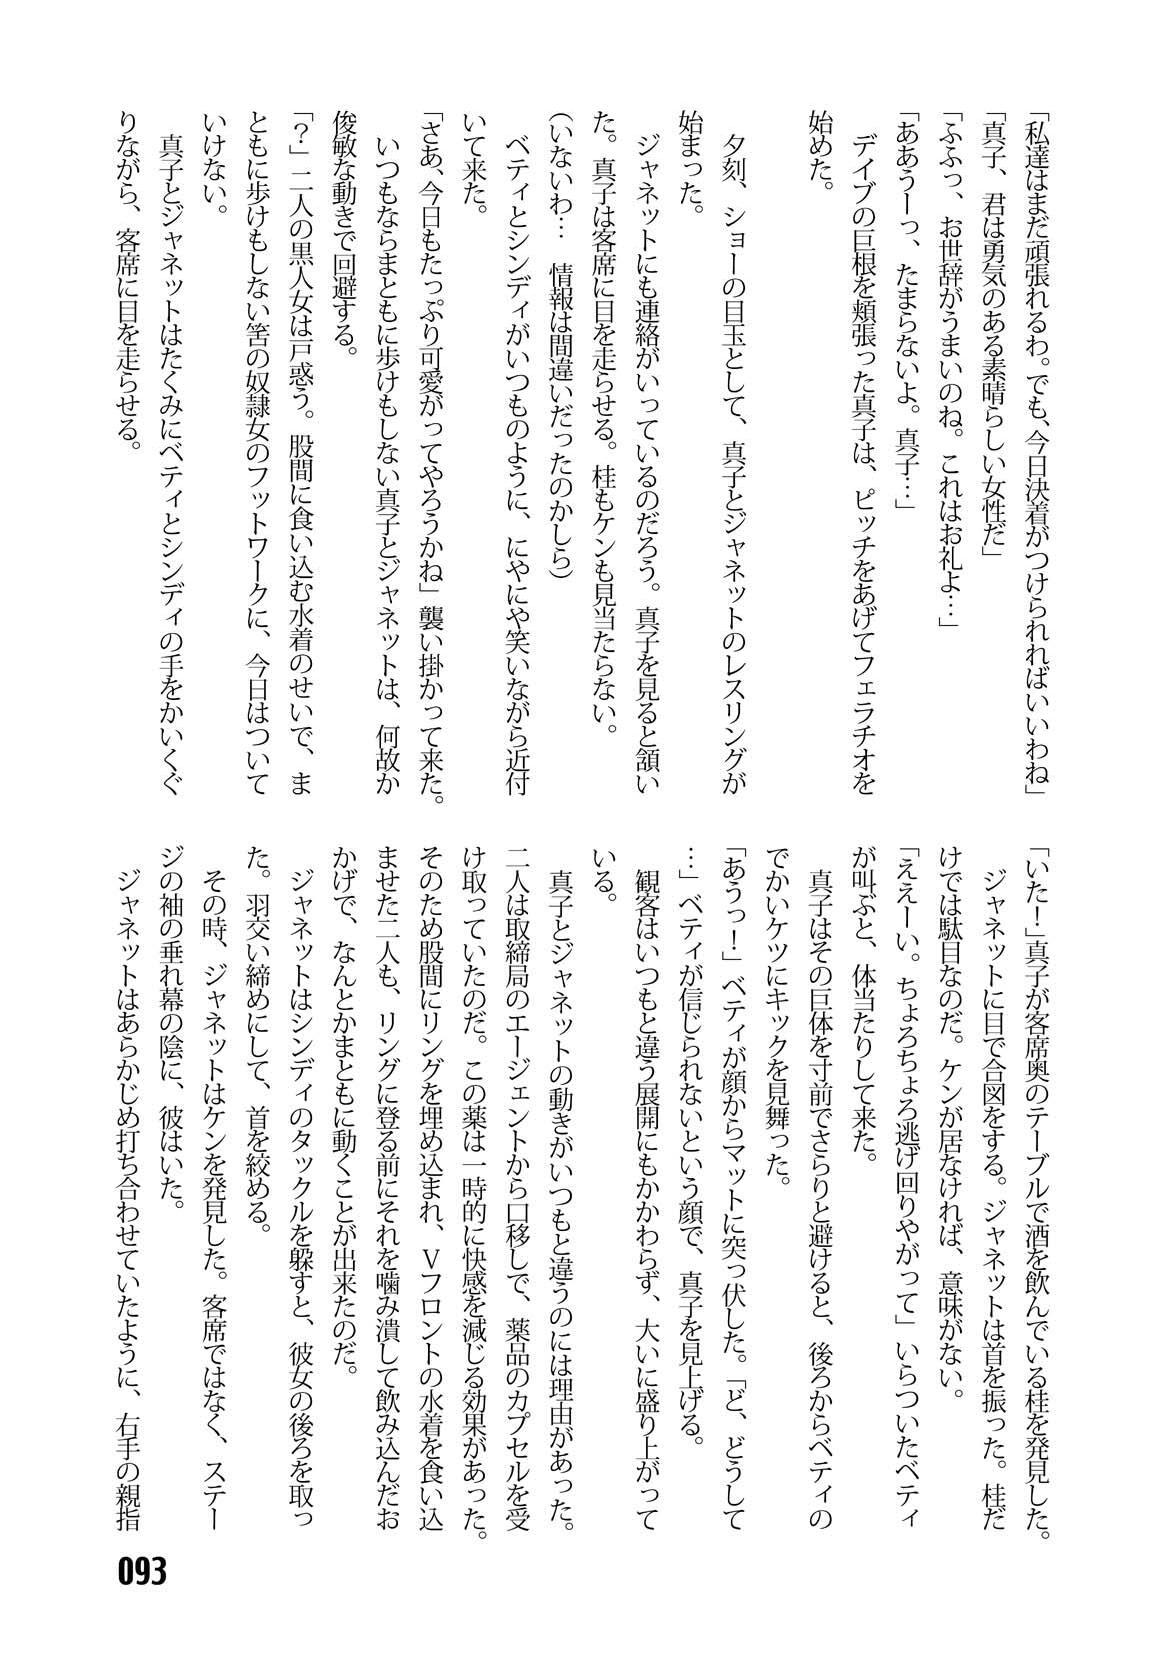 「私達はまだ頑張れるわ。でも、今日決着がつけられればいいわね」
「真子、君は勇気のある素晴らしい女性だ」
「ふふっ、お世辞がうまいのね。これはお礼よ…」
「ああうーっ、たまらないよ。真子…」
　デイブの巨根を頬張った真子は、ピッチをあげてフェラチオを
始めた。
　夕刻、ショーの目玉として、真子とジャネットのレスリングが
始まった。
　ジャネットにも連絡がいっているのだろう。真子を見ると頷い
た。真子は客席に目を走らせる。桂もケンも見当たらない。
（いないわ…　情報は間違いだったのかしら）
　ベティとシンディがいつものように、にやにや笑いながら近付
いて来た。
「さあ、今日もたっぷり可愛がってやろうかね」襲い掛かって来た。
　いつもならまともに歩けもしない真子とジャネットは、何故か
俊敏な動きで回避する。
「？」二人の黒人女は戸惑う。股間に食い込む水着のせいで、ま
ともに歩けもしない筈の奴隷女のフットワークに、今日はついて
いけない。
　真子とジャネットはたくみにベティとシンディの手をかいくぐ
りながら、客席に目を走らせる。
「いた！」真子が客席奥のテーブルで酒を飲んでいる桂を発見した。
　ジャネットに目で合図をする。ジャネットは首を振った。桂だ
けでは駄目なのだ。ケンが居なければ、意味がない。
「ええーい。ちょろちょろ逃げ回りやがって」いらついたベティ
が叫ぶと、体当たりして来た。
　真子はその巨体を寸前でさらりと避けると、後ろからベティの
でかいケツにキックを見舞った。
「あうっ！」ベティが顔からマットに突っ伏した。「ど、どうして
…」ベティが信じられないという顔で、真子を見上げる。
　観客はいつもと違う展開にもかかわらず、大いに盛り上がって
いる。
　真子とジャネットの動きがいつもと違うのには理由があった。
二人は取締局のエージェントから口移しで、薬品のカプセルを受
け取っていたのだ。この薬は一時的に快感を減じる効果があった。
そのため股間にリングを埋め込まれ、Ｖフロントの水着を食い込
ませた二人も、リングに登る前にそれを噛み潰して飲み込んだお
かげで、なんとかまともに動くことが出来たのだ。
　ジャネットはシンディのタックルを躱すと、彼女の後ろを取っ
た。羽交い締めにして、首を絞める。
　その時、ジャネットはケンを発見した。客席ではなく、ステー
ジの袖の垂れ幕の陰に、彼はいた。
　ジャネットはあらかじめ打ち合わせていたように、右手の親指
093